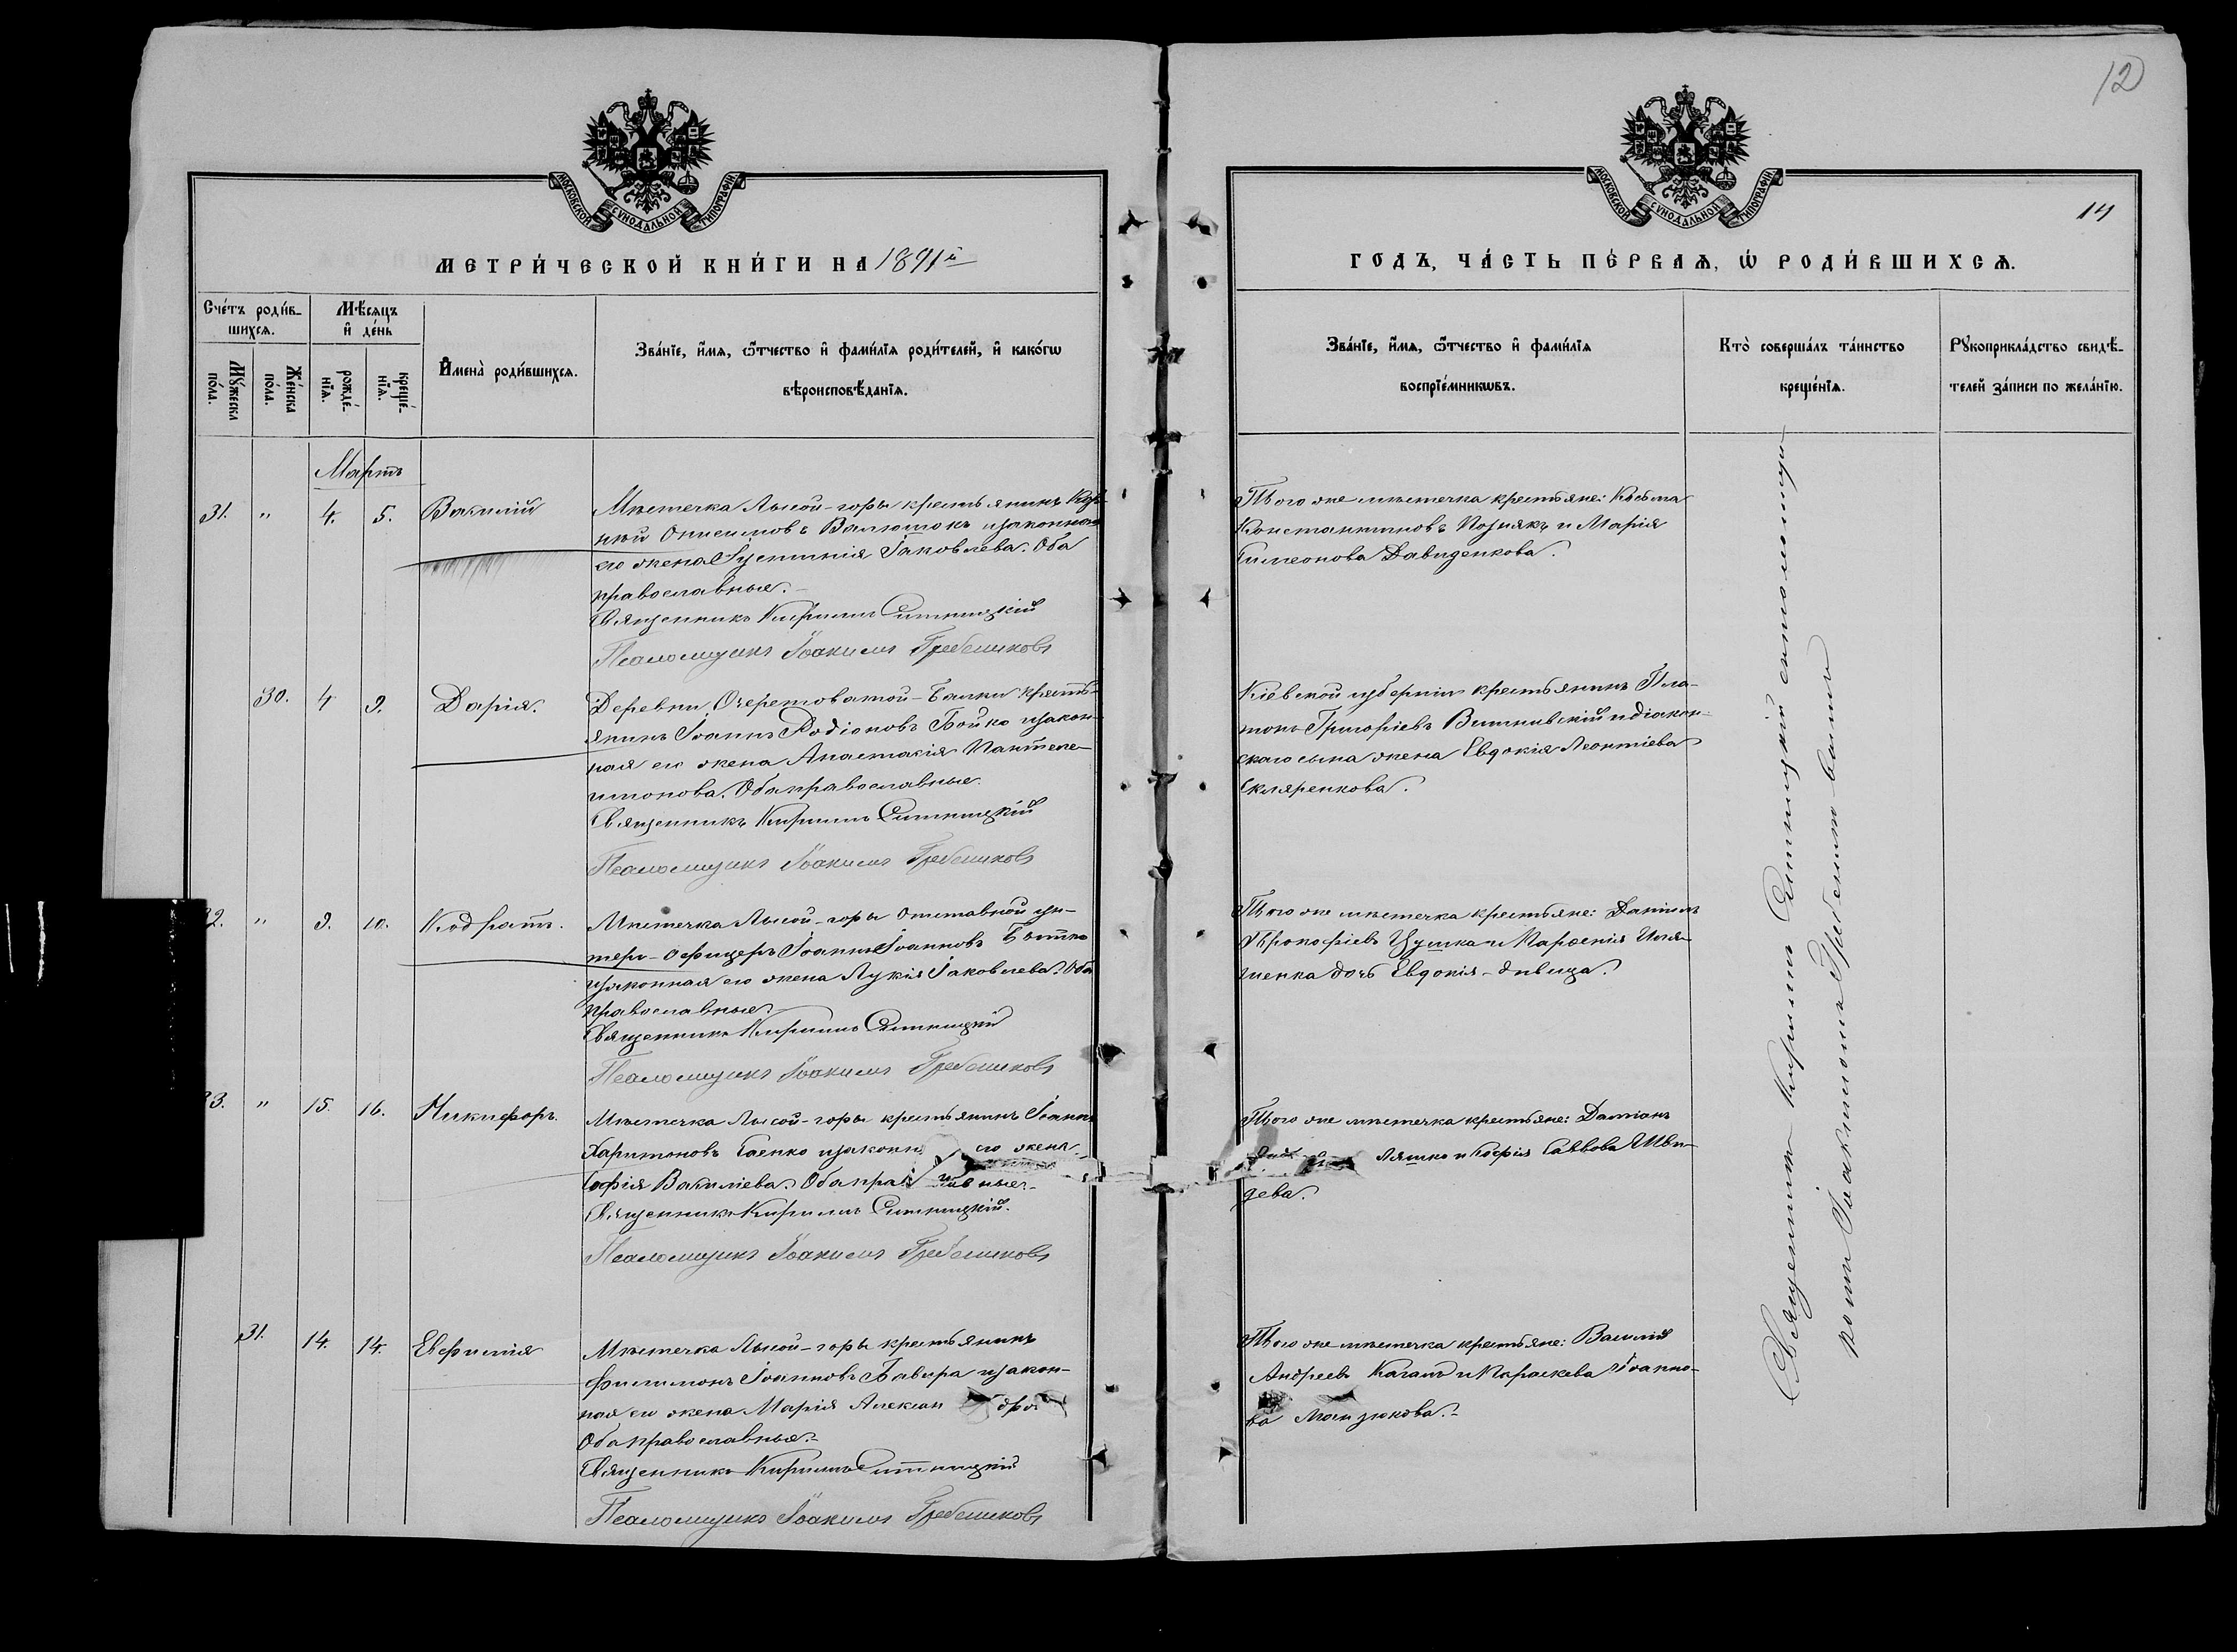 12
МОСКОВСКОЙ СѴНОДАЛЬНОЙ ТИПОГРАФІИ
МЕТРИ́ЧЕСКОЙ КНИ́ГИ НА 1891й
Сче́тъ роди́в-
шихсѧ.
Мѣ́сяцъ
и҆ де́нь
Мꙋ́жеска
по́ла.
Же́нска
по́ла.
рожде́-
нїѧ.
креще́-
нїѧ.
И҆мена̀ роди́вшихсѧ.
Зва́нїе, и҆́мѧ, ѻ҆́тчество и҆ фами́лїѧ роди́телей, и҆ како́гѡ
вѣроисповѣ́данїѧ.
Мартъ
31. " 4. 5. Василій
Мѣстечка Лысой-горы крестьянинъ
Онисимовъ и законная
его жена Іустинія Іаковлева. Оба
православные.
Священникъ Кириллъ Ситницкій
Псаломщикъ Іоакимъ Гребениковъ
30. 4 9. Дарія.
Деревни Очеретоватой-Балки кресть-
янинъ Іоаннъ Родіоновъ Бойко и закон-
ная его жена Анастасія Пантеле-
имонова. Оба православные.
Священникъ Кириллъ Ситницкій
Псаломщикъ Іоакимъ Гребениковъ
32. " 9. 10. Кодратъ.
Мѣстечка Лысой-горы отставной ун-
теръ-офицеръ Іоаннъ Іоанновъ
и законная его жена Лукія Іаковлева. Оба
православные.
Священникъ Кириллъ Ситницкій
Псаломщикъ Іоакимъ Гребениковъ
33. " 15. 16. Никифоръ.
Мѣстечка Лысой-горы крестьянинъ Іоаннъ
Харитоновъ Саенко и законн его жена
Софія Василіева. Оба прав авные.
Священникъ Кириллъ Ситницкій.
Псаломщикъ Іоакимъ Гребениковъ
31. 14. 14. Евфимія
Мѣстечка Лысой-горы крестьянинъ
Филимонъ Іоанновъ Бавыра и закон-
ная его жена Марія Алексан дро
Оба православные.
Священникъ Кириллъ Ситницкій
Псаломщикъ Іоакимъ Гребениковъ
МОСКОВСКОЙ СѴНОДАЛЬНОЙ ТИПОГРАФІИ
14
ГОДЪ, ЧА́СТЬ ПЕ́РВАѦ, Ѡ҆ РОДИ́ВШИХСѦ.
Зва́нїе, и҆́мѧ, ѻ҆́тчество и҆ фами́лїѧ
воспрїе́мникѡвъ.
Кто̀ соверша́лъ та́инство
креще́нїѧ.
Рꙋкоприкла́дство свидѣ́-
телей за́писи по жела́нїю.
Того же мѣстечка крестьяне: Косьма
Константиновъ Познякъ и Марія
Симеонова Давиденкова.
Кіевской губерніи крестьянинъ Пла-
тонъ Григоріевъ Вишневскій и діакон-
скаго сына жена Евдокія Леонтіева
Скляренкова.
Того же мѣстечка крестьяне: Даніилъ
Прокофіевъ Цушка и Парѳенія Илья-
шенка дочь Евдокія-дѣвица.
Того же мѣстечка крестьяне: Даміанъ
Ляшко и Софія Саввова Шви-
дева.
Того же мѣстечка крестьяне: Василій
Андреевъ Каганъ и Параскева Іоанно-
ва
Священникъ Кириллъ Ситницкій съ псаломщи-
комъ Іоакимомъ Гребениковымъ